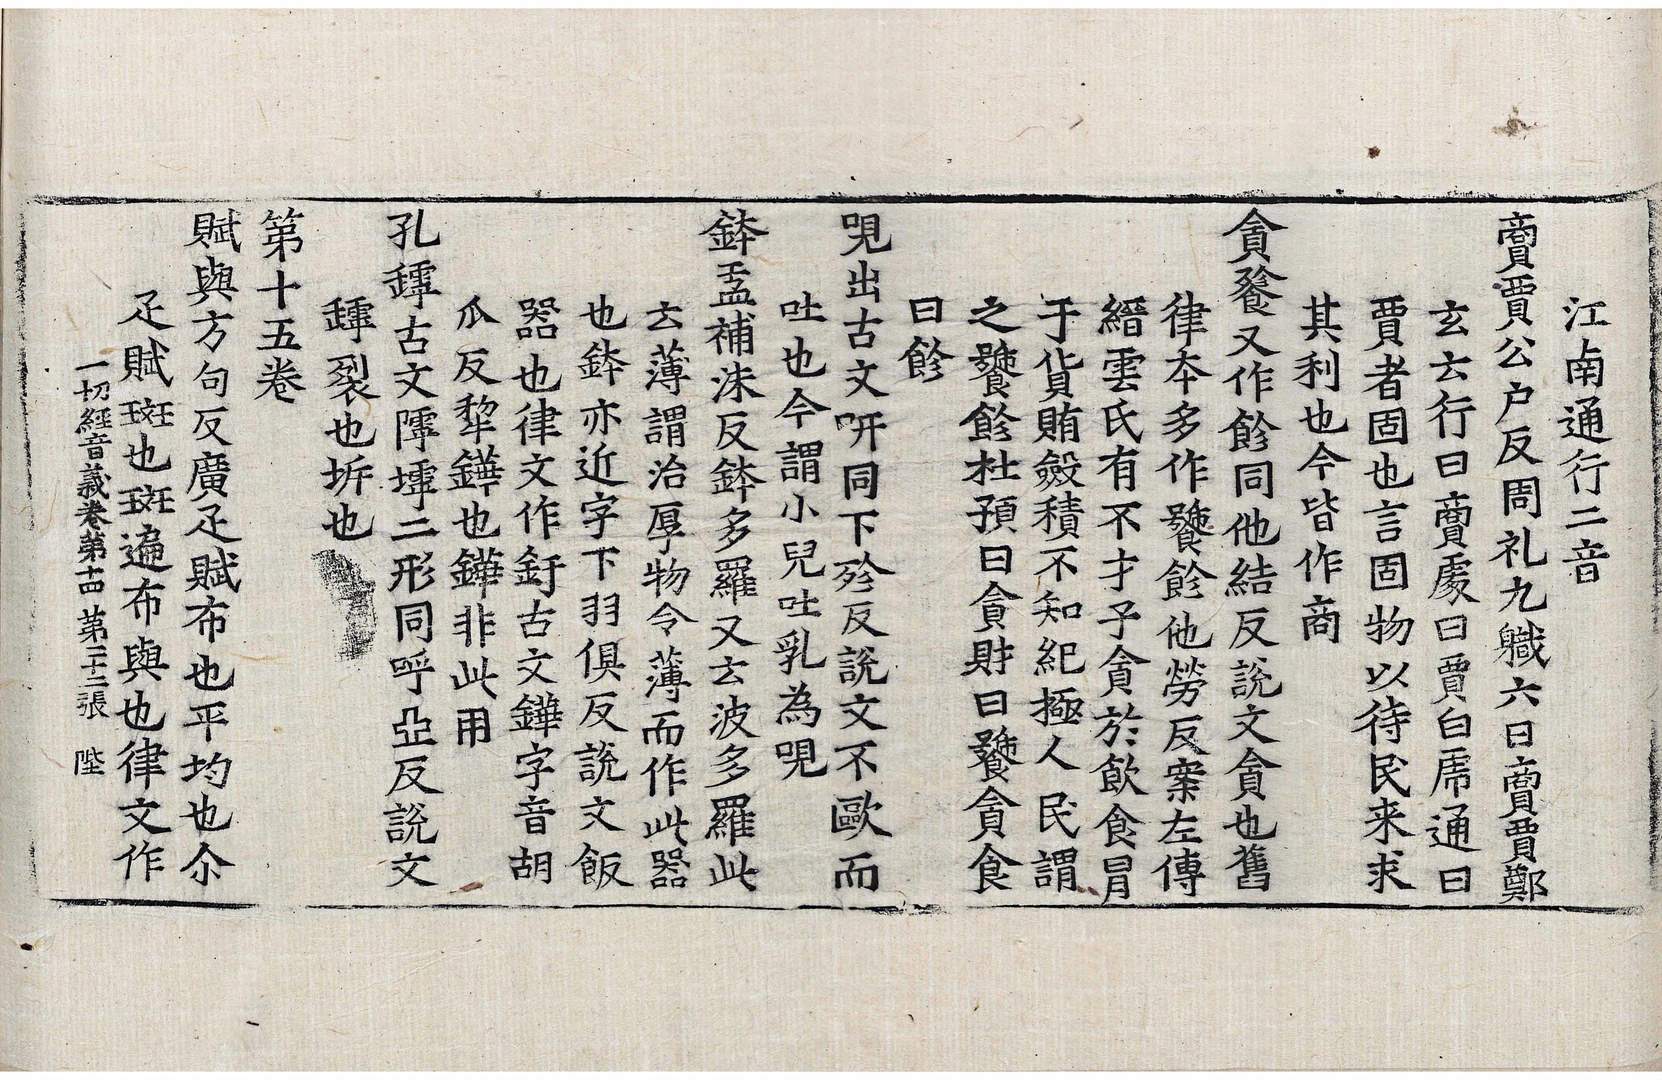 江南通行二音
賷賈公户反周礼九軄六日賷賈鄭
玄云行曰賷處曰賈白虎通曰
賈者固也言固物以待民来求
其利也今皆作商
貪飻又作飻同他結反說文貪也舊
律本多作饕飻他勞反案左傳
縉雲氏有不才子貪於飲食冐
于貨賄斂積不知紀極人民謂
之饕飻杜預曰貪財曰饕貪食
曰飻
哯出古文呀同下殄反說文不歐而
吐也今謂小兒吐乳為哯
鉢盂補沫反鉢多羅又云波多羅此
云薄謂治厚物令薄而作此器
也鉢亦近字下羽俱反說文飯
器也律文作釪古文鏵字音胡
瓜反犂鏵也鏵非此用
孔罅古文㙤墿二形同呼亞反說文
罅裂也坼也
第十五卷
賦與方句反廣疋賦布也平均也尒
疋賦班也班遍布與也律文作
一切經音義卷第十四 第二十三張 陛